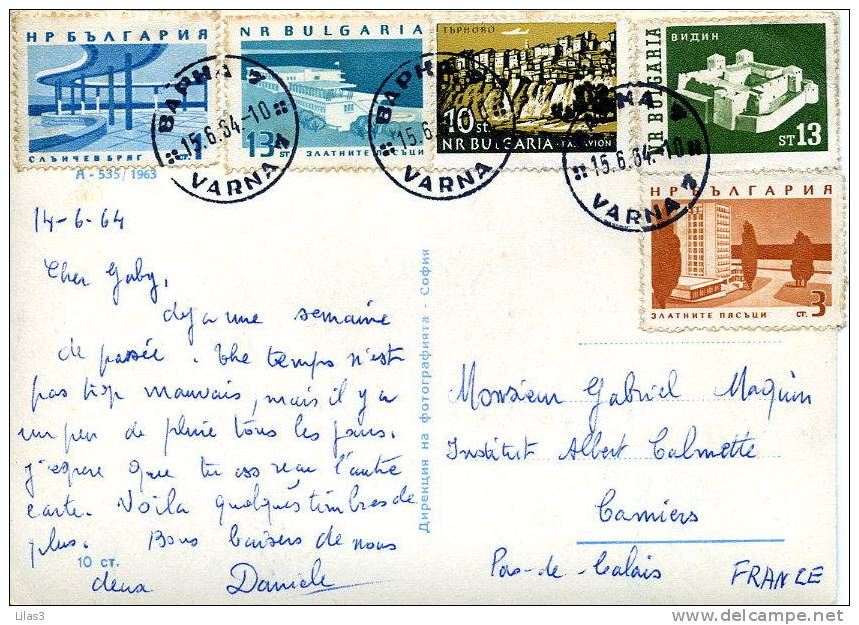 НР БЪЛГАРИЯ
СЛЪНЧЕВ БРЯГ СТ. 1
NR BULGARIA
13 ST ЗЛАТНИТЕ ПЯСЪЦИ
ТЪРНОВО
10 st.
NR BULGARIA - PAR AVION
NR BULGARIA
ВИДИН
ST 13
НР БЪЛГАРИЯ
ЗЛАТНИТЕ ПЯСЪЦИ СТ. 3
ВАРНА
15.6.64.-10
VARNA 1
ВАРНА
15.6
VARNA
15.6.64.-10
VARNA 1
А - 535/1963
14-6-64
Cher Gaby,
deja une semaine
de passée. The temps n'est
pas trop mauvais, mais il y a
un peu de pluie tous les jours.
J'espere que tu as reçu l'autre
carte. Voila quelques timbres de
plus. Bons baisers de nous
deux Daniele
10 ст.
Дирекция на фотографията - София
Monsieur Gabriel Maquin
Institut Albert Calmette
Camiers
Pas-de-Calais FRANCE
Lilas3
delcampe.net